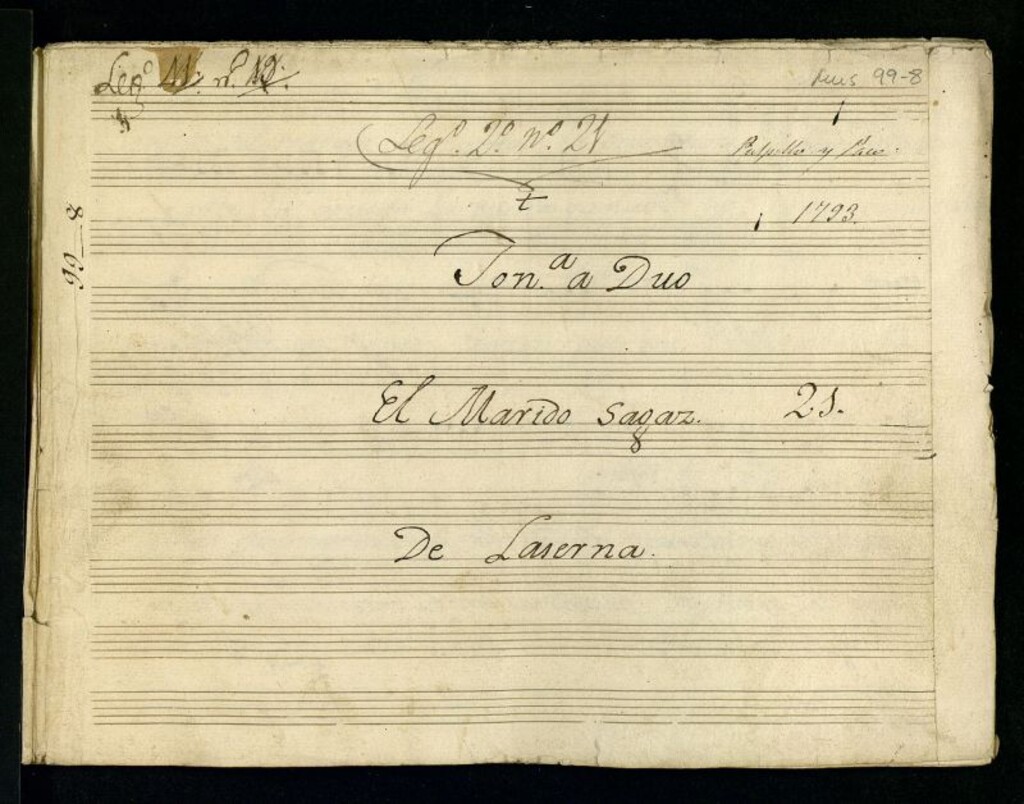 Leg.º 11. nº
Mus 99-8
Leg.º 2.º nº 21
Pulpillo y Paco.
1793.
99-8
Ton.ª a Duo
El Marido sagaz. 21.
De Laserna.